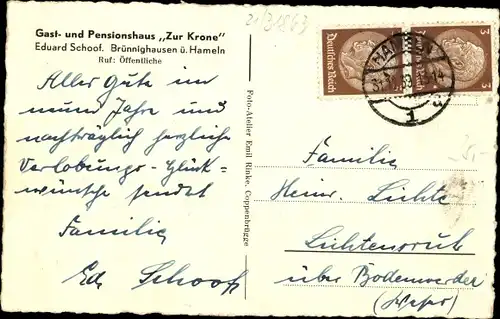 21/31843
Gast- und Pensionshaus „Zur Krone"
Eduard Schoof. Brünnighausen ü. Hameln
Ruf: Öffentliche
Alles Gute im
neuen Jahre und
nachträglich herzliche
Verlobungs-Glück-
wünsche sendet
Familie
Ed. Schoof
Foto-Atelier Emil Rinke, Coppenbrügge
Deutsches Reich
3
HAMELN
1
Familie
Heinr. Lichte
Lichtenhagen
über Bodenwerder
(Weser)